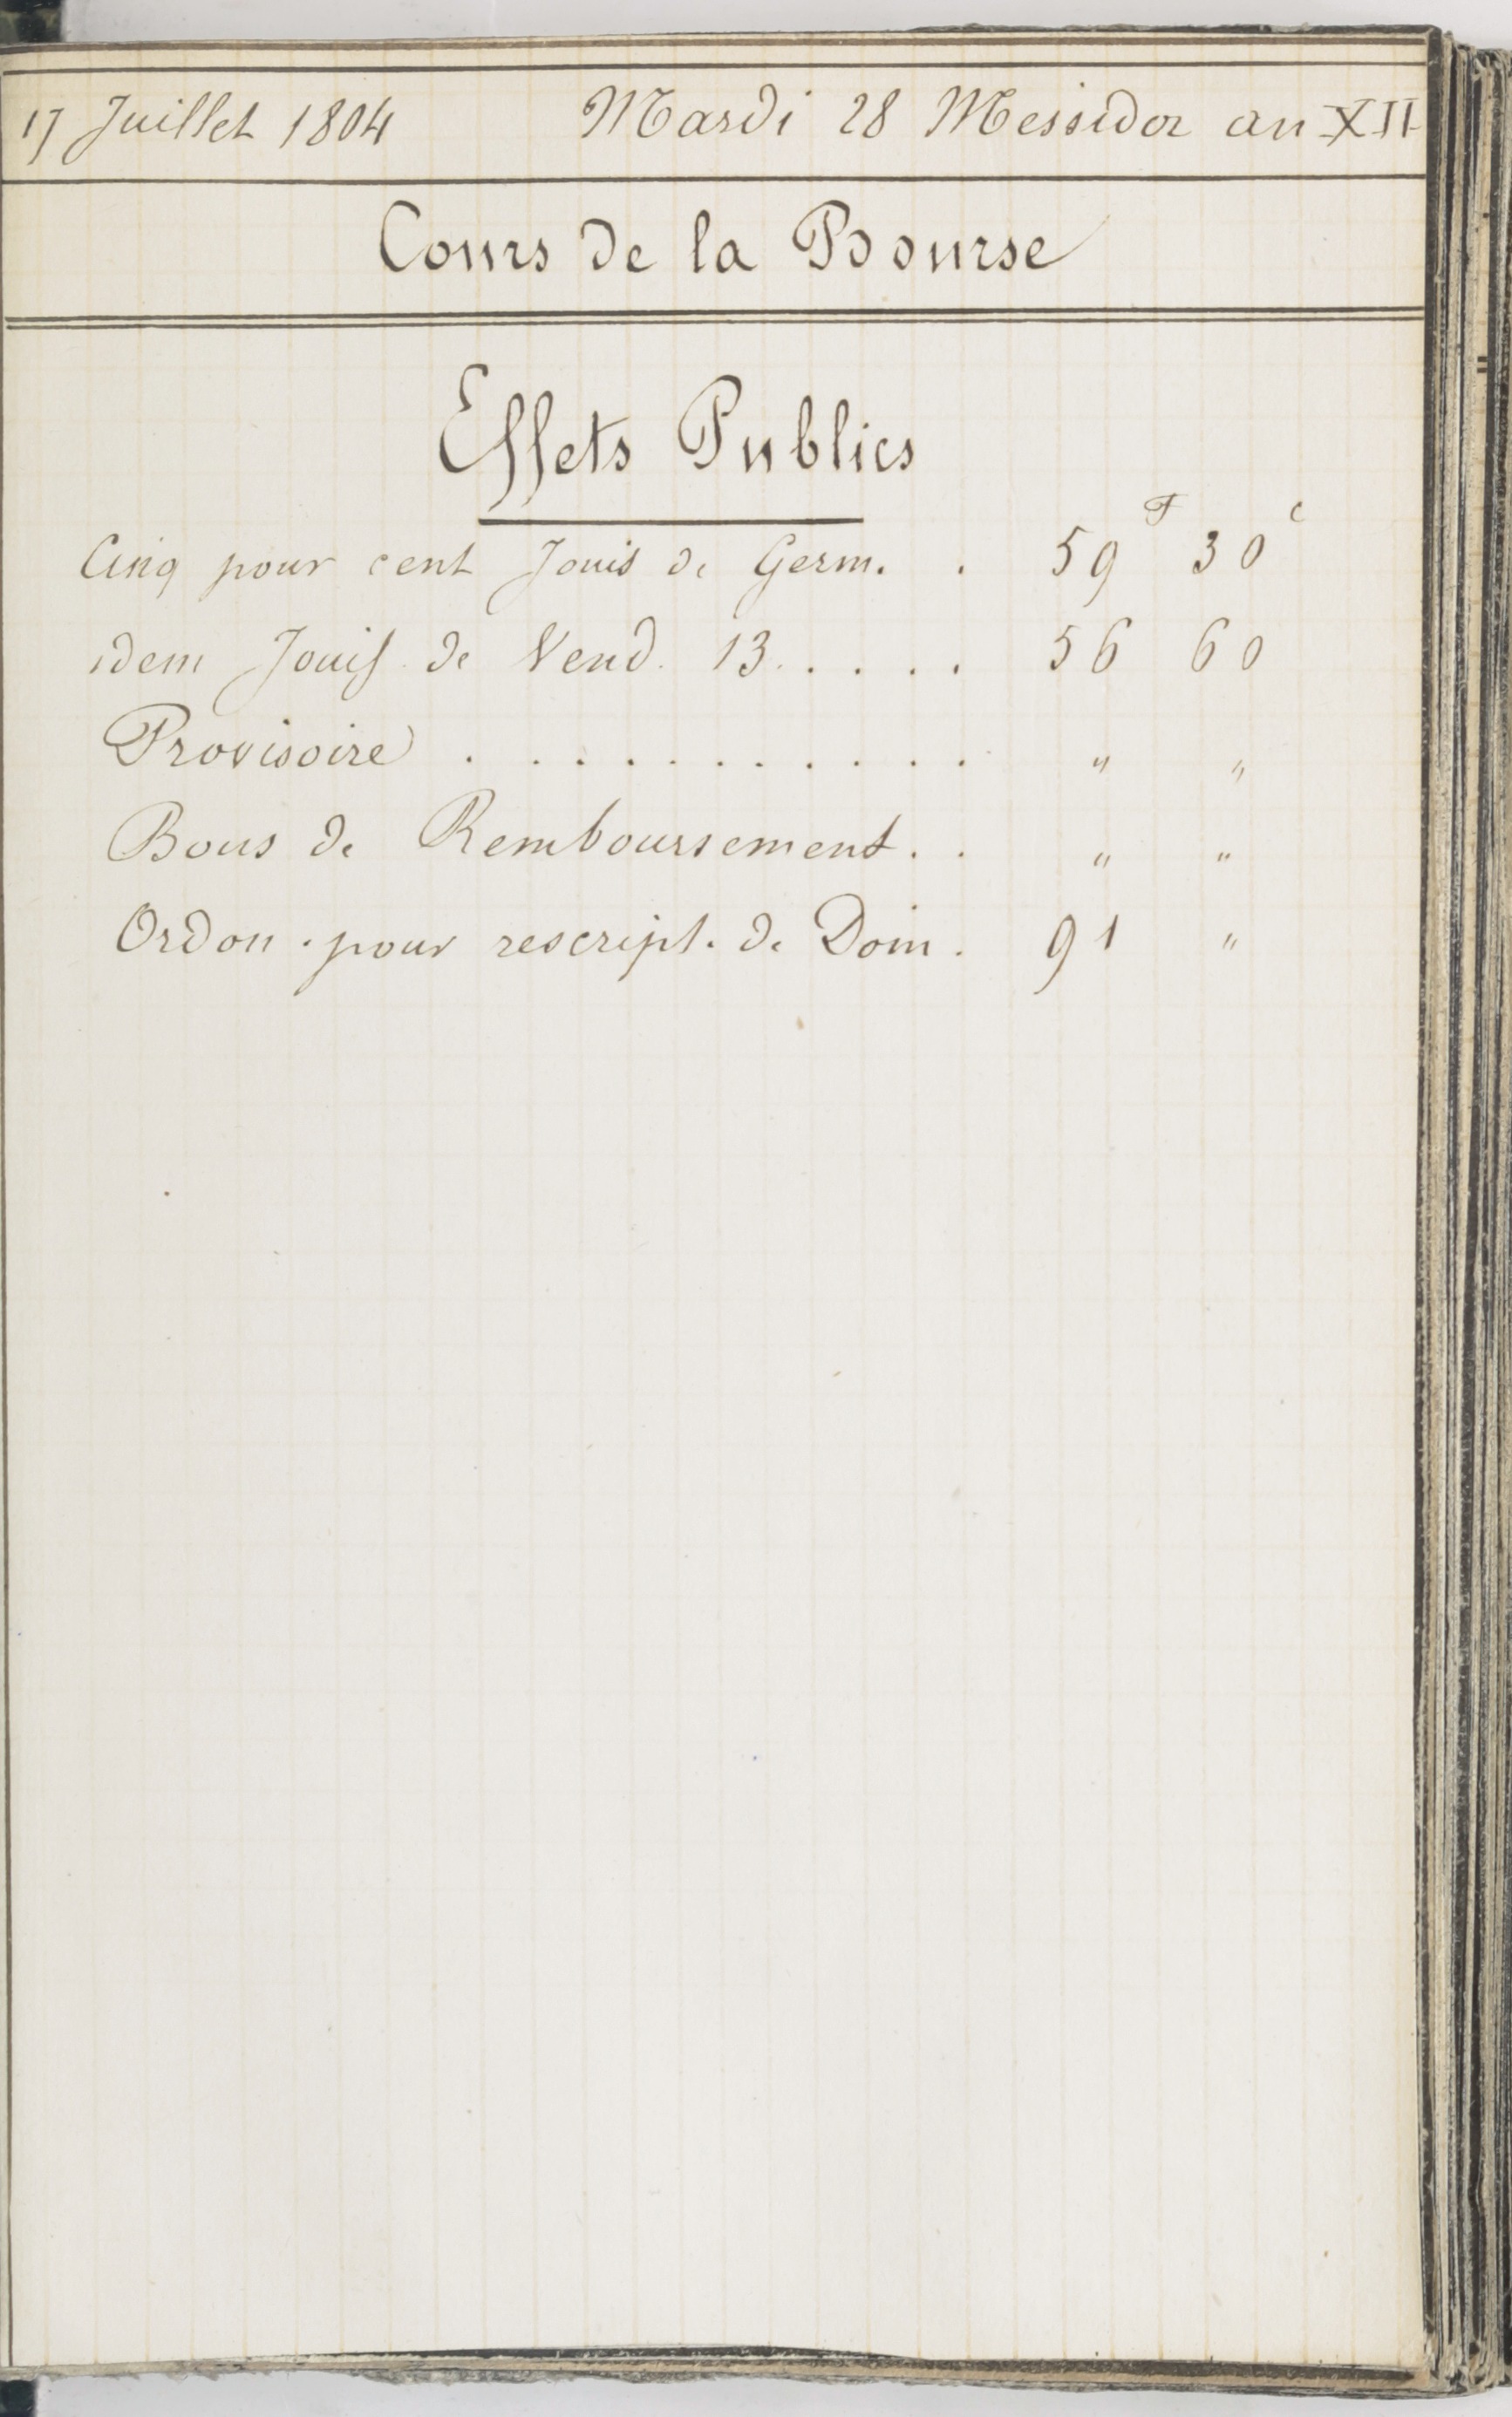 17 Juillet 1804 Mardi 28 Messidor an XII
Cours de la Bourse
Effets Publics
F c
Cinq pour cent Jouis de Germ. . 59 30
idem Jouis. de Vend. 13. . . . . 56 60
Provisoire . . . . . . . . . . . . " "
Bons de Remboursement. . " "
Ordon. pour rescript. de Dom. 91 "